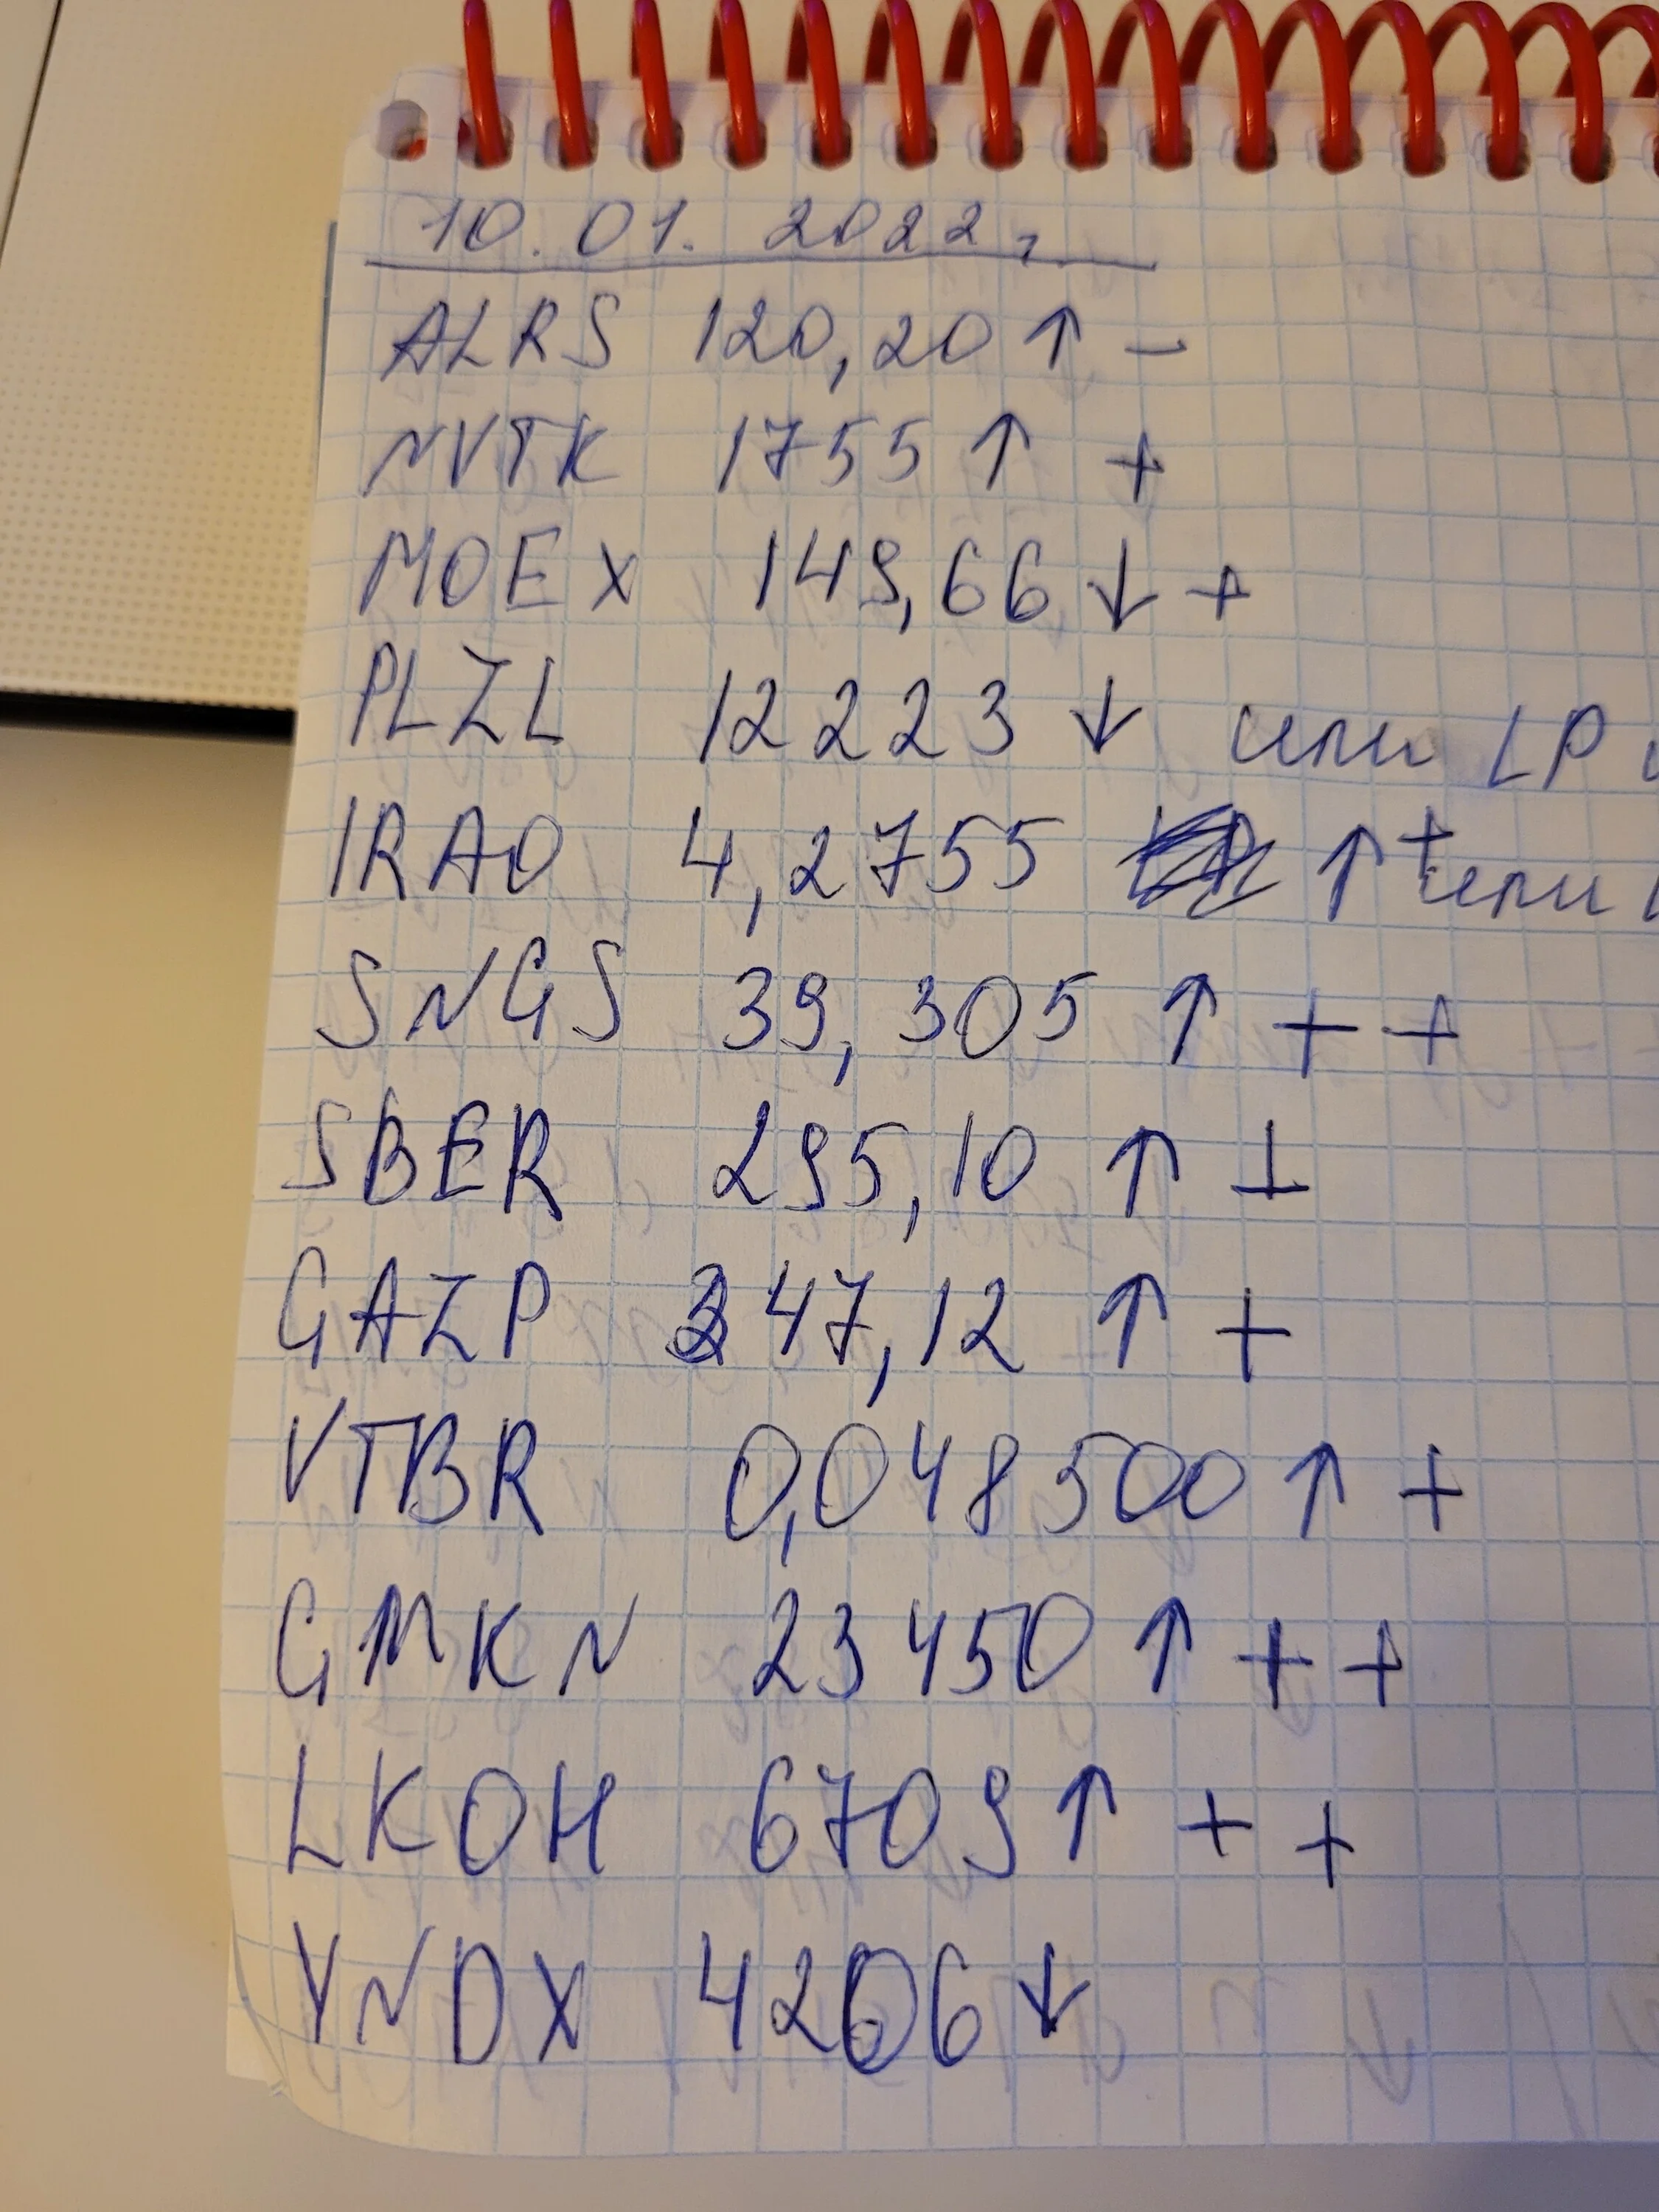 10.01.2022г.
ALRS 120,20 ↑ −
NVTK 1755 ↑ +
MOEX 149,66 ↓ +
PLZL 12223 ↓ или LP
IRAO 4,2755 ↑ + или
SNGS 39,305 ↑ + +
SBER 295,10 ↑ ⊥
GAZP 347,12 ↑ +
VTBR 0,048500 ↑ +
GMKN 23450 ↑ + +
LKOH 6709 ↑ + +
YNDX 4206 ↓